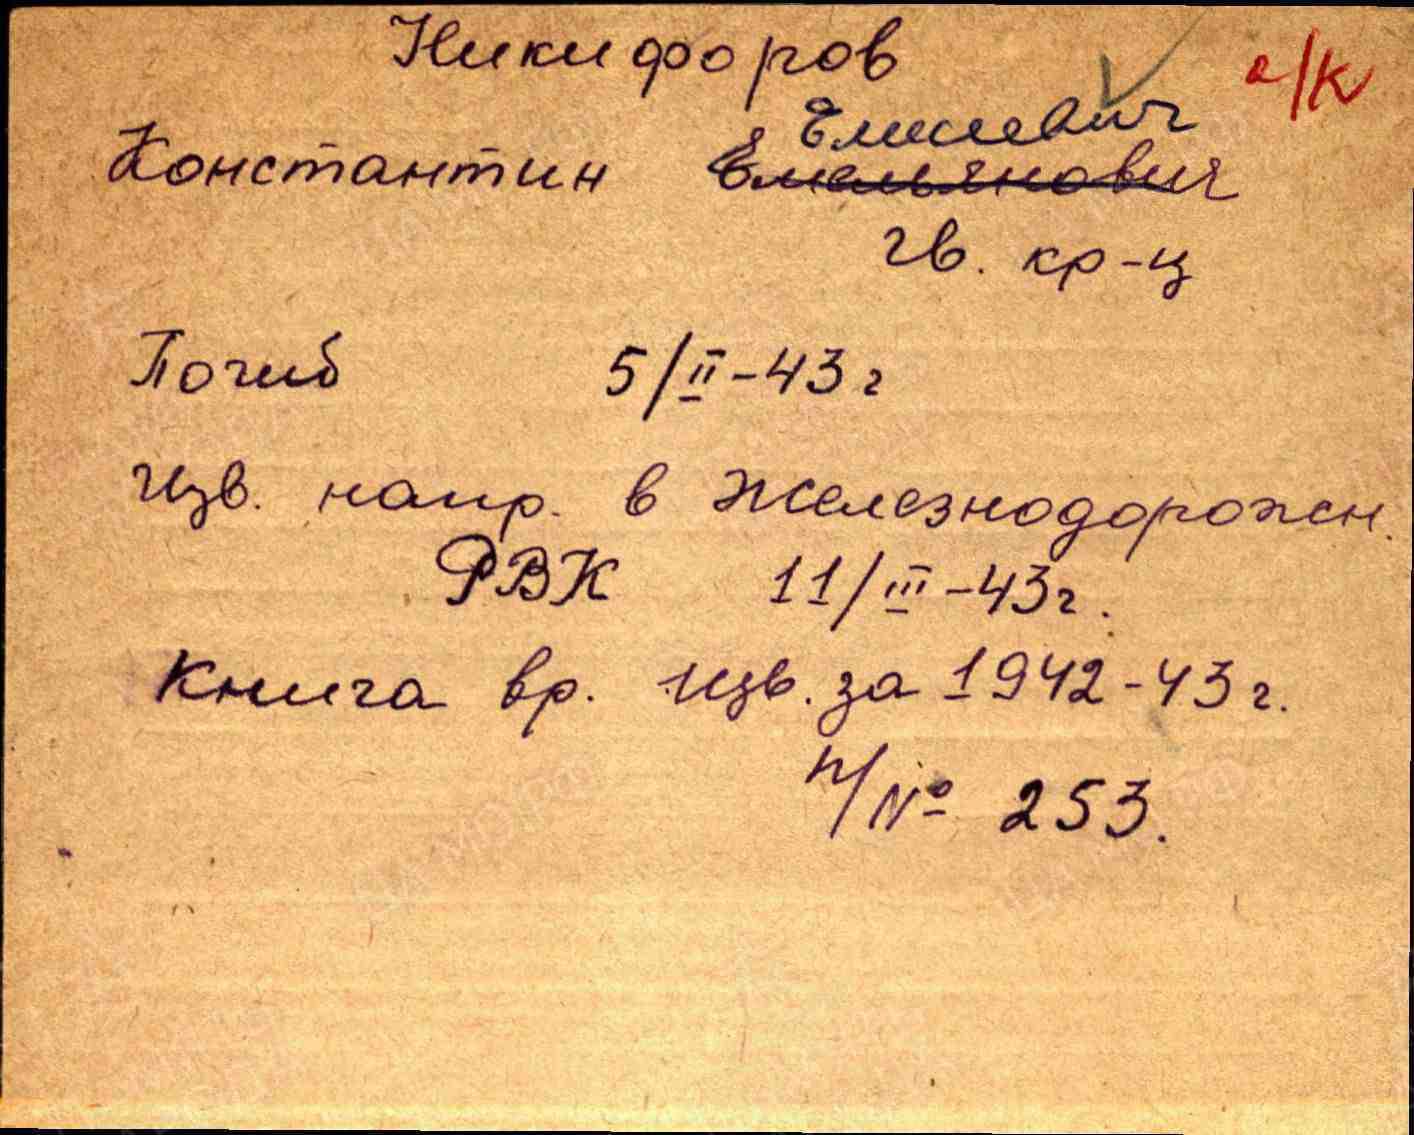 Никифоров
о/к
Елисеевич
Константин Емельянович
гв. кр-ц
Погиб 5/II-43 г
Изв. напр. в Железнодорожн.
РВК 11/III-43 г.
Книга вр. изв. за 1942-43 г.
н/№ 253.